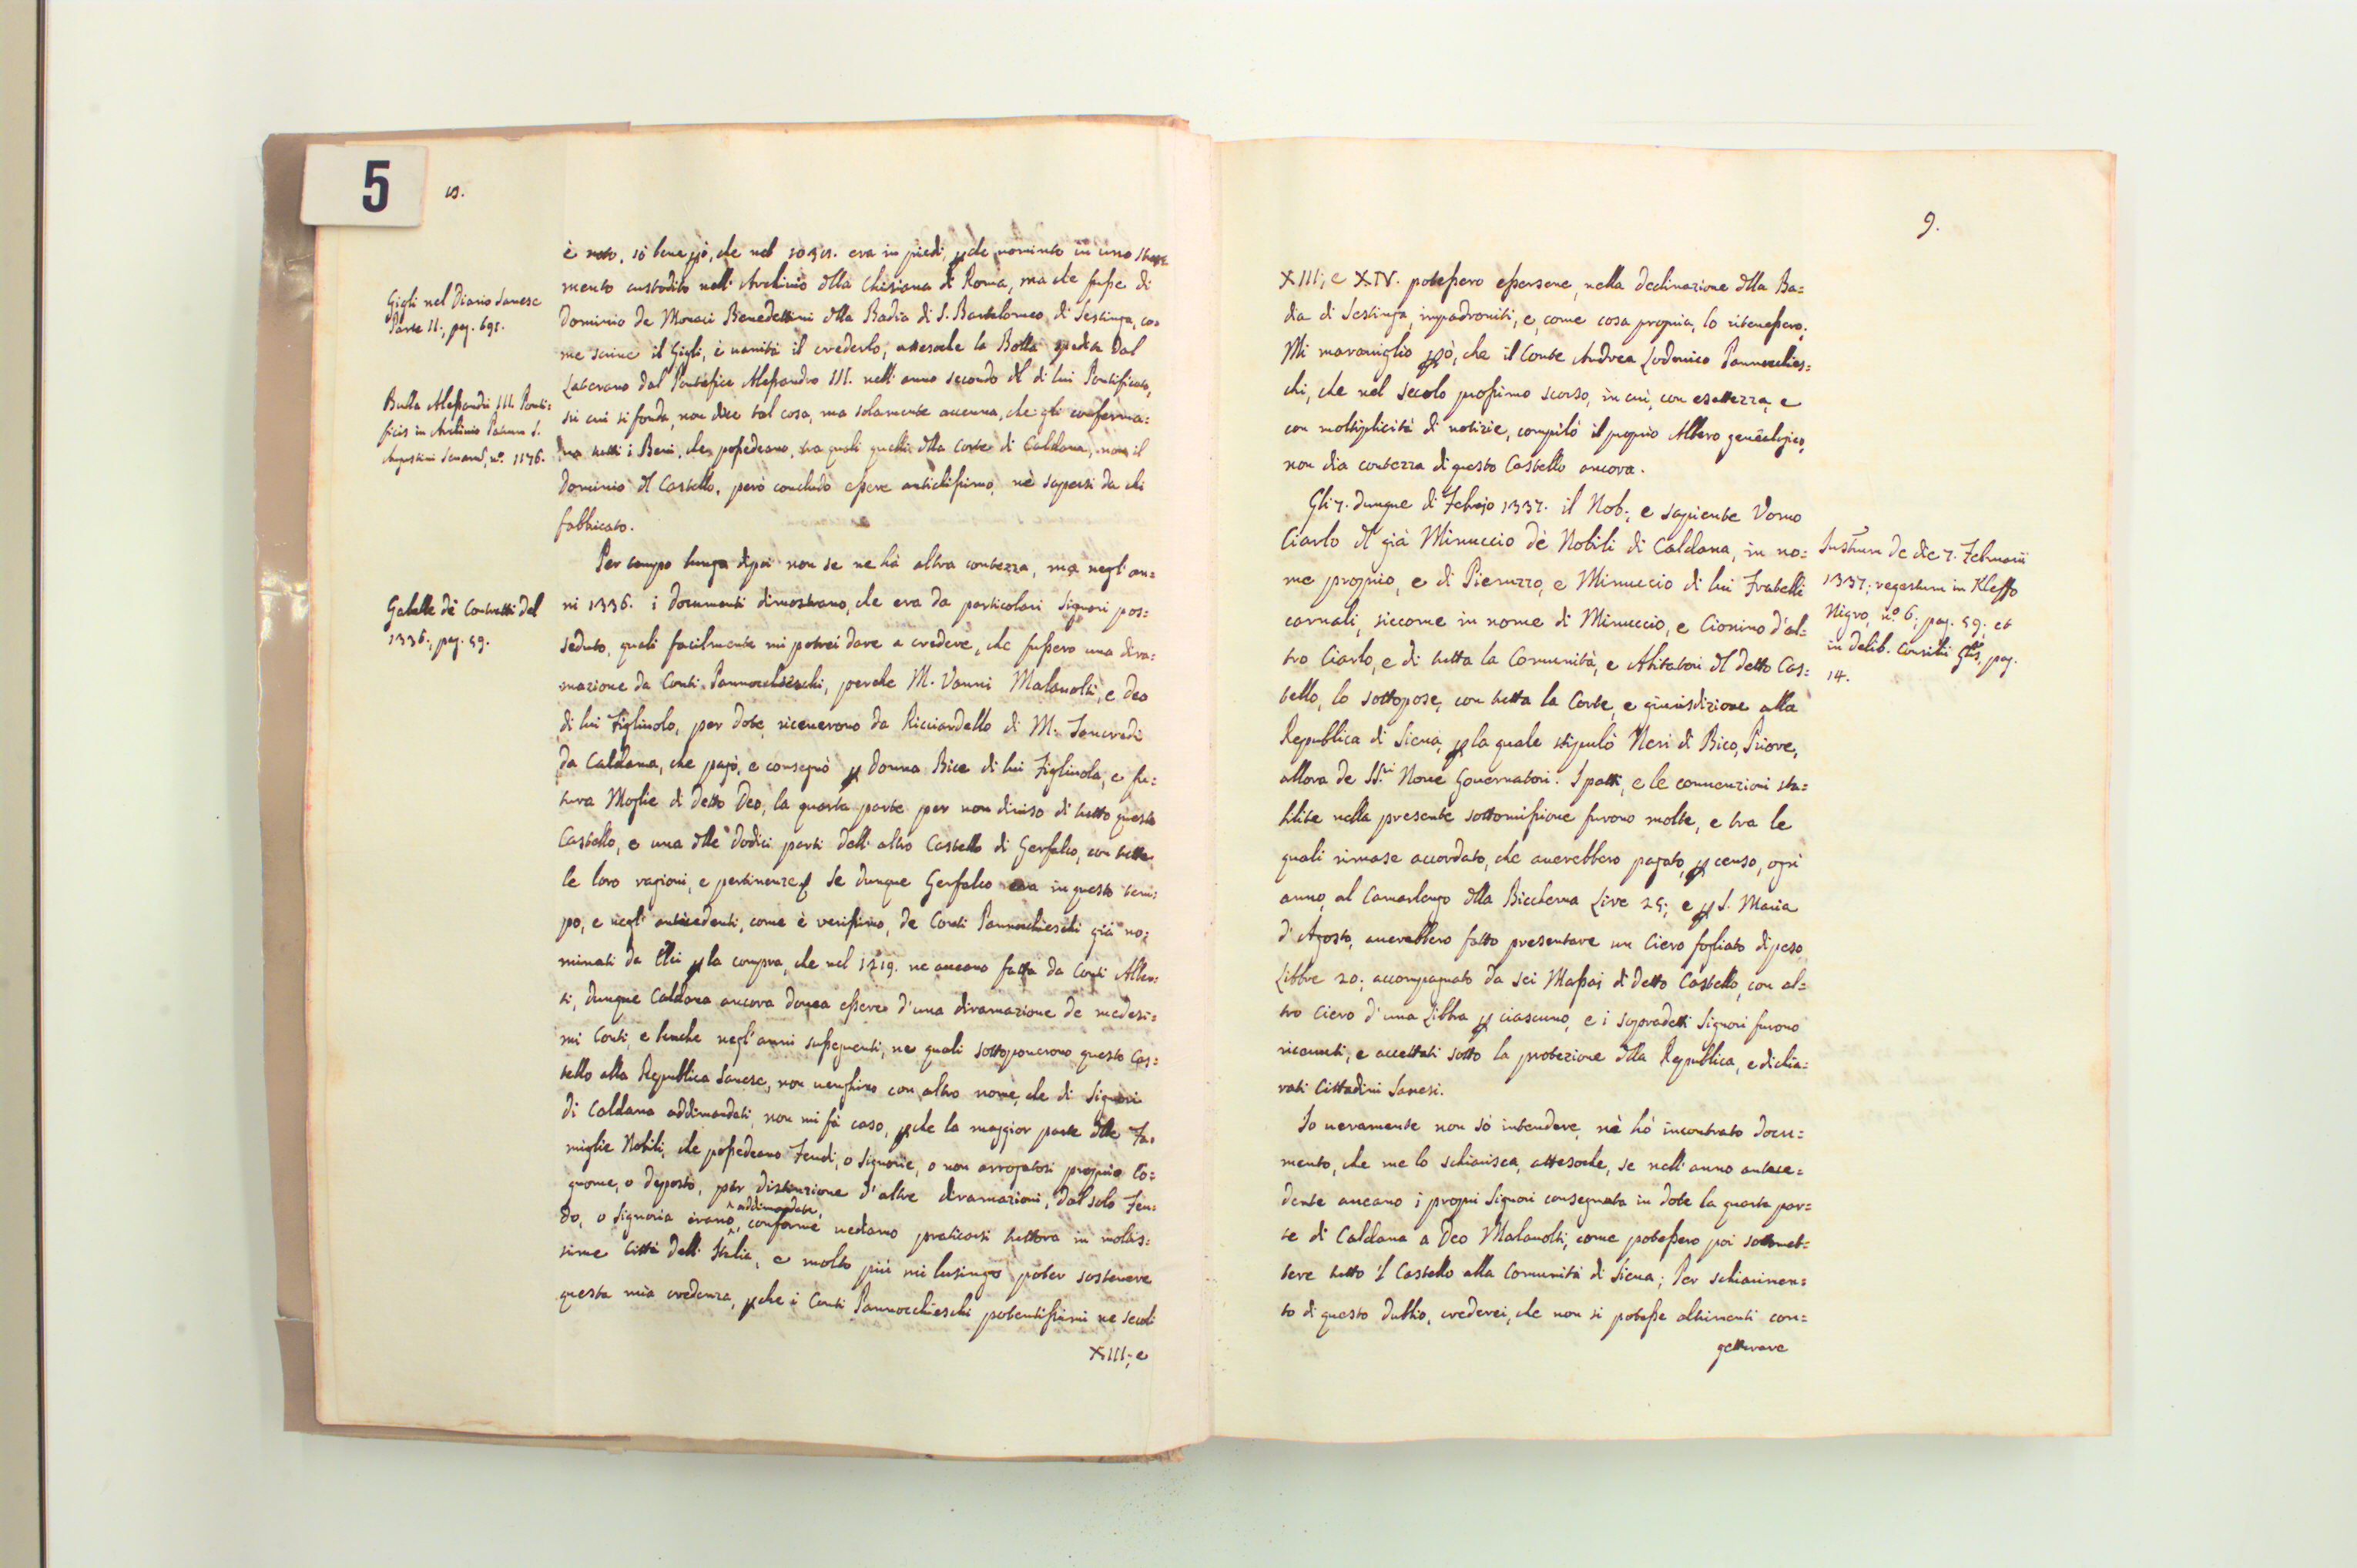 5
8.
è noto, sò bene però, che nel 1038. era in piedi, perche nominato in uno stru=
mento custodito nell'Archivio della Chisiana di Roma, ma che fusse di
Dominio de Monaci Benedettini della Badia di S. Bartolomeo di Sestinga, co=
me scrive il Gigli, è vanità il crederlo, attesoche la Bolla spedita dal
Laterano dal Pontefice Alessandro III. nell'anno secondo del di lui Pontificato,
sù cui si fonda, non dice tal cosa, ma solamente accenna, che gli conferma=
va tutti i Beni, che possedeano, tra quali quelli della Corte di Caldana, non il
Dominio del Castello, però concludo essere antichissimo, nè sapersi da chi
fabbricato.
Per tempo lungo dipoi non se ne hà altra contezza, ma negl'an=
ni 1336. i documenti dimostrano, che era da particolari Signori pos=
seduto, quali facilmente mi potrei dare a credere, che fussero una dira=
mazione da Conti Pannocchieschi, perche M. Vanni Malavolti, e Deo
di lui Figliuolo, per dote, riceverono da Ricciardello di M. Tancredi
da Caldana, che pagò, e consegnò per donna Bice di lui Figliuola, e fu=
tura Moglie di detto Deo, la quarta parte per non diviso di tutto questo
Castello, e una delle dodici parti dell'altro Castello di Gerfalco, con tutte
le loro ragioni, e pertinenze. Se dunque Gerfalco era in questo tem=
po, e negl'antecedenti, come è verissimo, de Conti Pannochieschi già no=
minati da Elci per la compra, che nel 1219. ne aveano fatta da Conti Alber=
ti, dunque Caldana ancora dovea essere d'una diramazione de medesi=
mi Conti, e benche negl'anni susseguenti, ne quali sottoponerono questo Cas=
tello alla Republica Sanese, non venghino con altro nome, che di Signori
di Caldana addimandati, non mi fà caso, perche la maggior parte delle Fa=
miglie Nobili, che possedeano Feudi, o Signorie, o non arrogatosi proprio Co=
gnome, o deposto, per distinzione d'altre diramazioni, dal solo Feu=
do, o Signoria erano addimandate, conforme vediamo praticarsi tuttora in molis=
sime Città dell'Italia, e molto più mi lusingo poter sostenere
questa mia credenza, perche i Conti Pannocchieschi potentissimi ne secoli
XIII; e
Gigli nel Diario Sanese
Parte II., pag. 691.
Bulla Alessandri III. Ponti=
ficis in Archivio Patrum S.
Augustini Senarum, n.º 1176.
Gabelle dè Contratti del
1336., pag. 59.
9.
XIII; e XIV. potessero essersene, nella declinazione della Ba=
dia di Sestinga, impadroniti, e, come cosa propria, lo ritenessero;
Mi maraviglio però, che il Conte Andrea Lodovico Pannocchies=
chi, che nel secolo prossimo scorso, in cui, con esattezza, e
con moltiplicità di notizie, compilò il proprio Albero genealogico,
non dia contezza di questo Castello ancora.
Gli 7. dunque di Febrajo 1337. il Nob:, e sapiente Vomo
Ciarlo del già Minuccio dè Nobili di Caldana, in no=
me proprio, e di Pieruzzo, e Minuccio di lui Fratelli
carnali, siccome in nome di Minuccio, e Cionino d'al=
tro Ciarlo, e di tutta la Comunità, e Abitatori del detto Cas=
tello, lo sottopose, con tutta la Corte, e giurisdizione alla
Republica di Siena, per la quale stipulò Neri di Bico, Priore,
allora de SS.ri Nove Governatori. I patti, e le convenzioni sta=
bilite nella presente sottomissione furono molte, e tra le
quali rimase accordato, che averebbero pagato, per censo, ogni
anno, al Camarlengo della Biccherna Lire 25; e per S. Maria
d'Agosto, averebbero fatto presentare un Ciero fogliato di peso
Libbre 20; accompagnato da sei Massai di detto Castello, con al=
tro Ciero d'una Libbra per ciascuno, e i sopradetti Signori furono
ricevuti, e accettati sotto la protezione della Republica, e dichia=
rati Cittadini Sanesi.
Io veramente non sò intendere, nè hò incontrato docu=
mento, che me lo schiarisca, attesoche, se nell'anno antece=
dente aveano i propri Signori consegnata in dote la quarta par=
te di Caldana a Deo Malavolti, come potessero poi sottomet=
tere tutto 'l Castello alla Comunità di Siena; Per schiarimen=
to di questo dubbio, crederei, che non si potesse altrimenti con=
getturare
Instrum de die 7. Februarii
1337; regestum in Kleffo
Nigro, n.º 6; pag. 59; et
in delib. Consilii Glis, pag.
14.